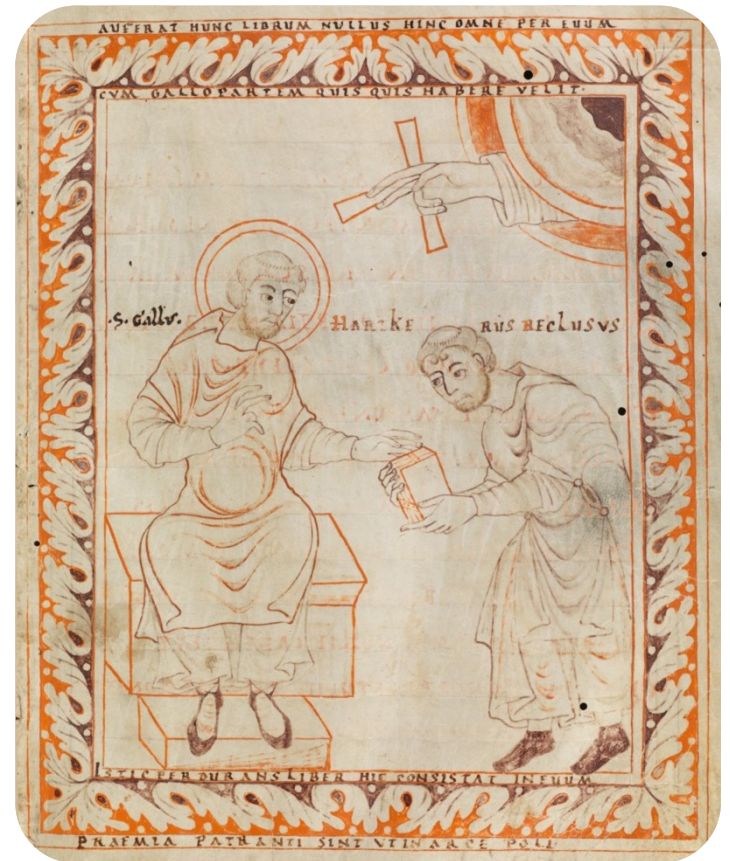 AUFERAT HUNC LIBRUM NULLUS HINC OMNE PER EUUM
CVM GALLO PARTEM QUIS QUIS HABERE VELIT·
·S· Gallus· HARTKERUS RECLUSUS
ISTIC PERDURANS LIBER HIC CONSISTAT IN EUUM
PRAEMIA PATRANTI SINT UT IN ARCE POLI